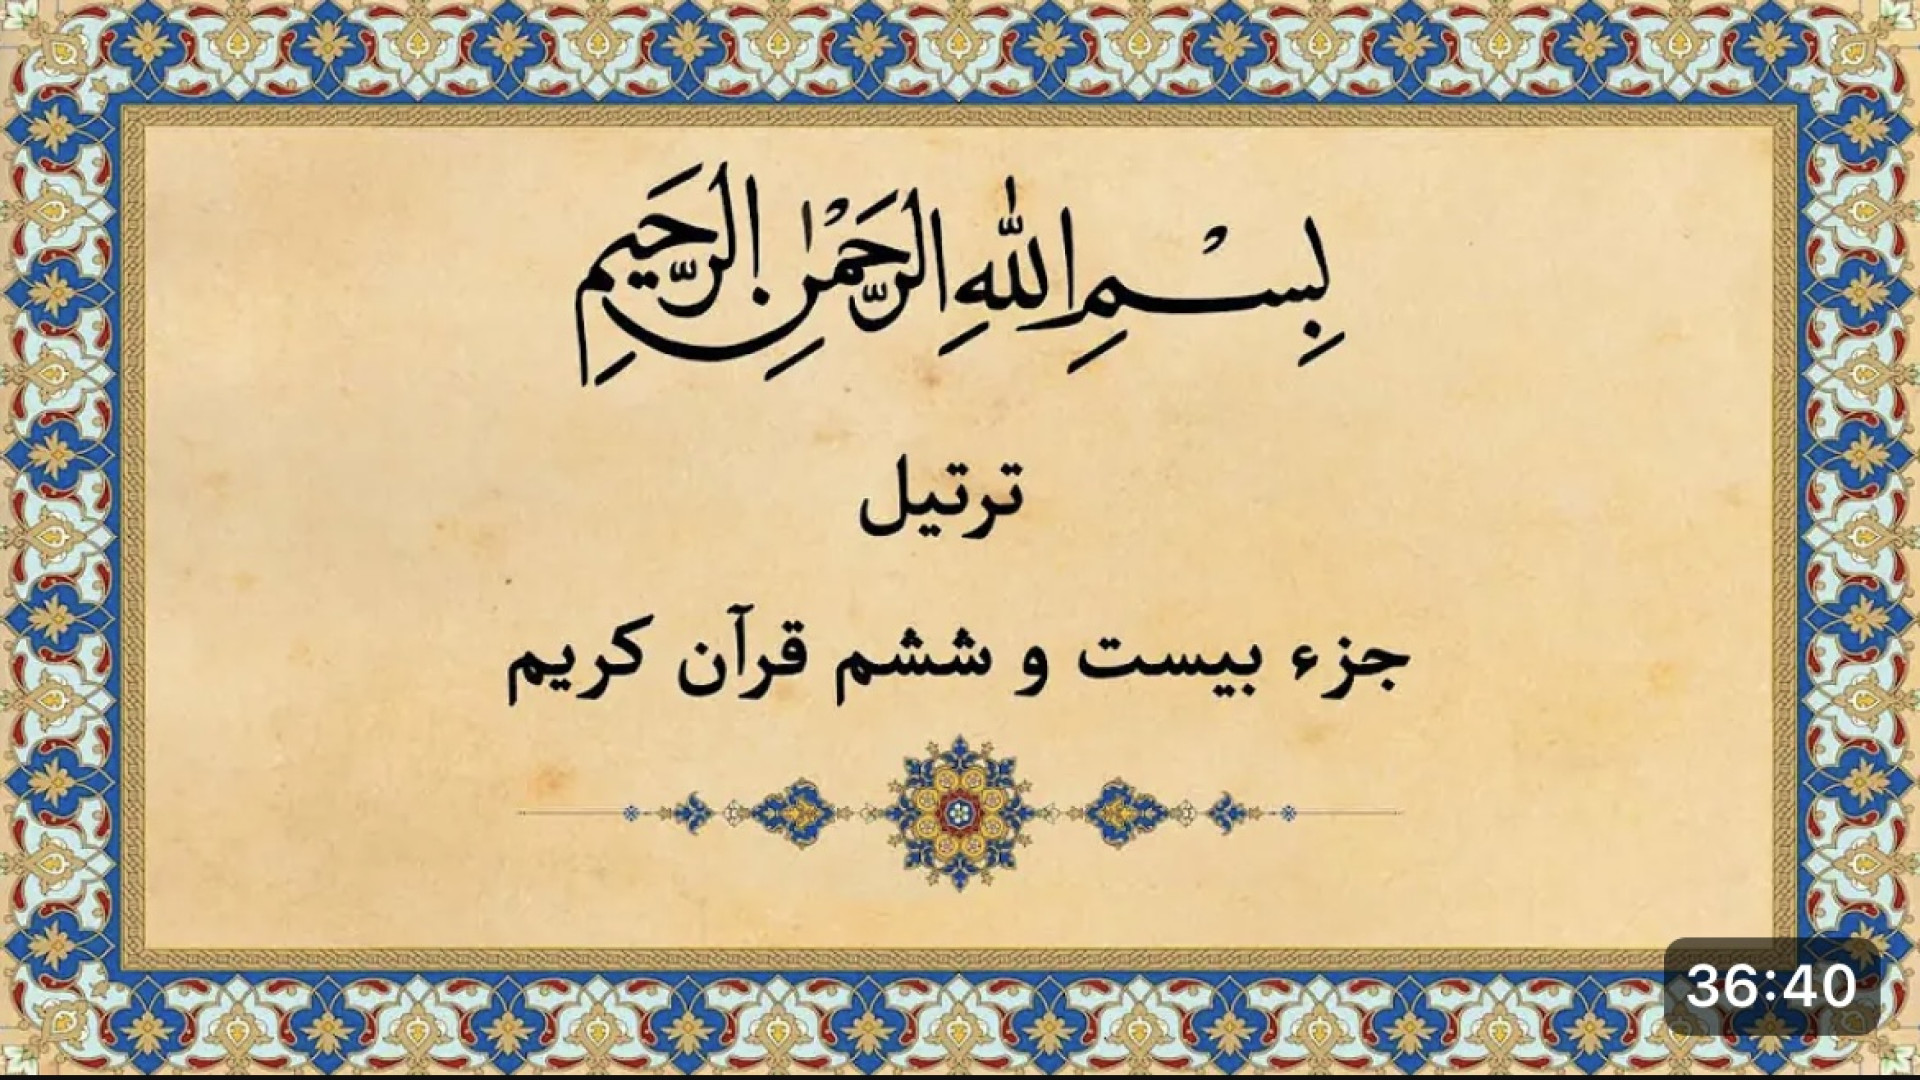 بِسْمِ اللّٰهِ الرَّحْمٰنِ الرَّحِیمِ
ترتیل
جزء بیست و ششم قرآن کریم
36:40